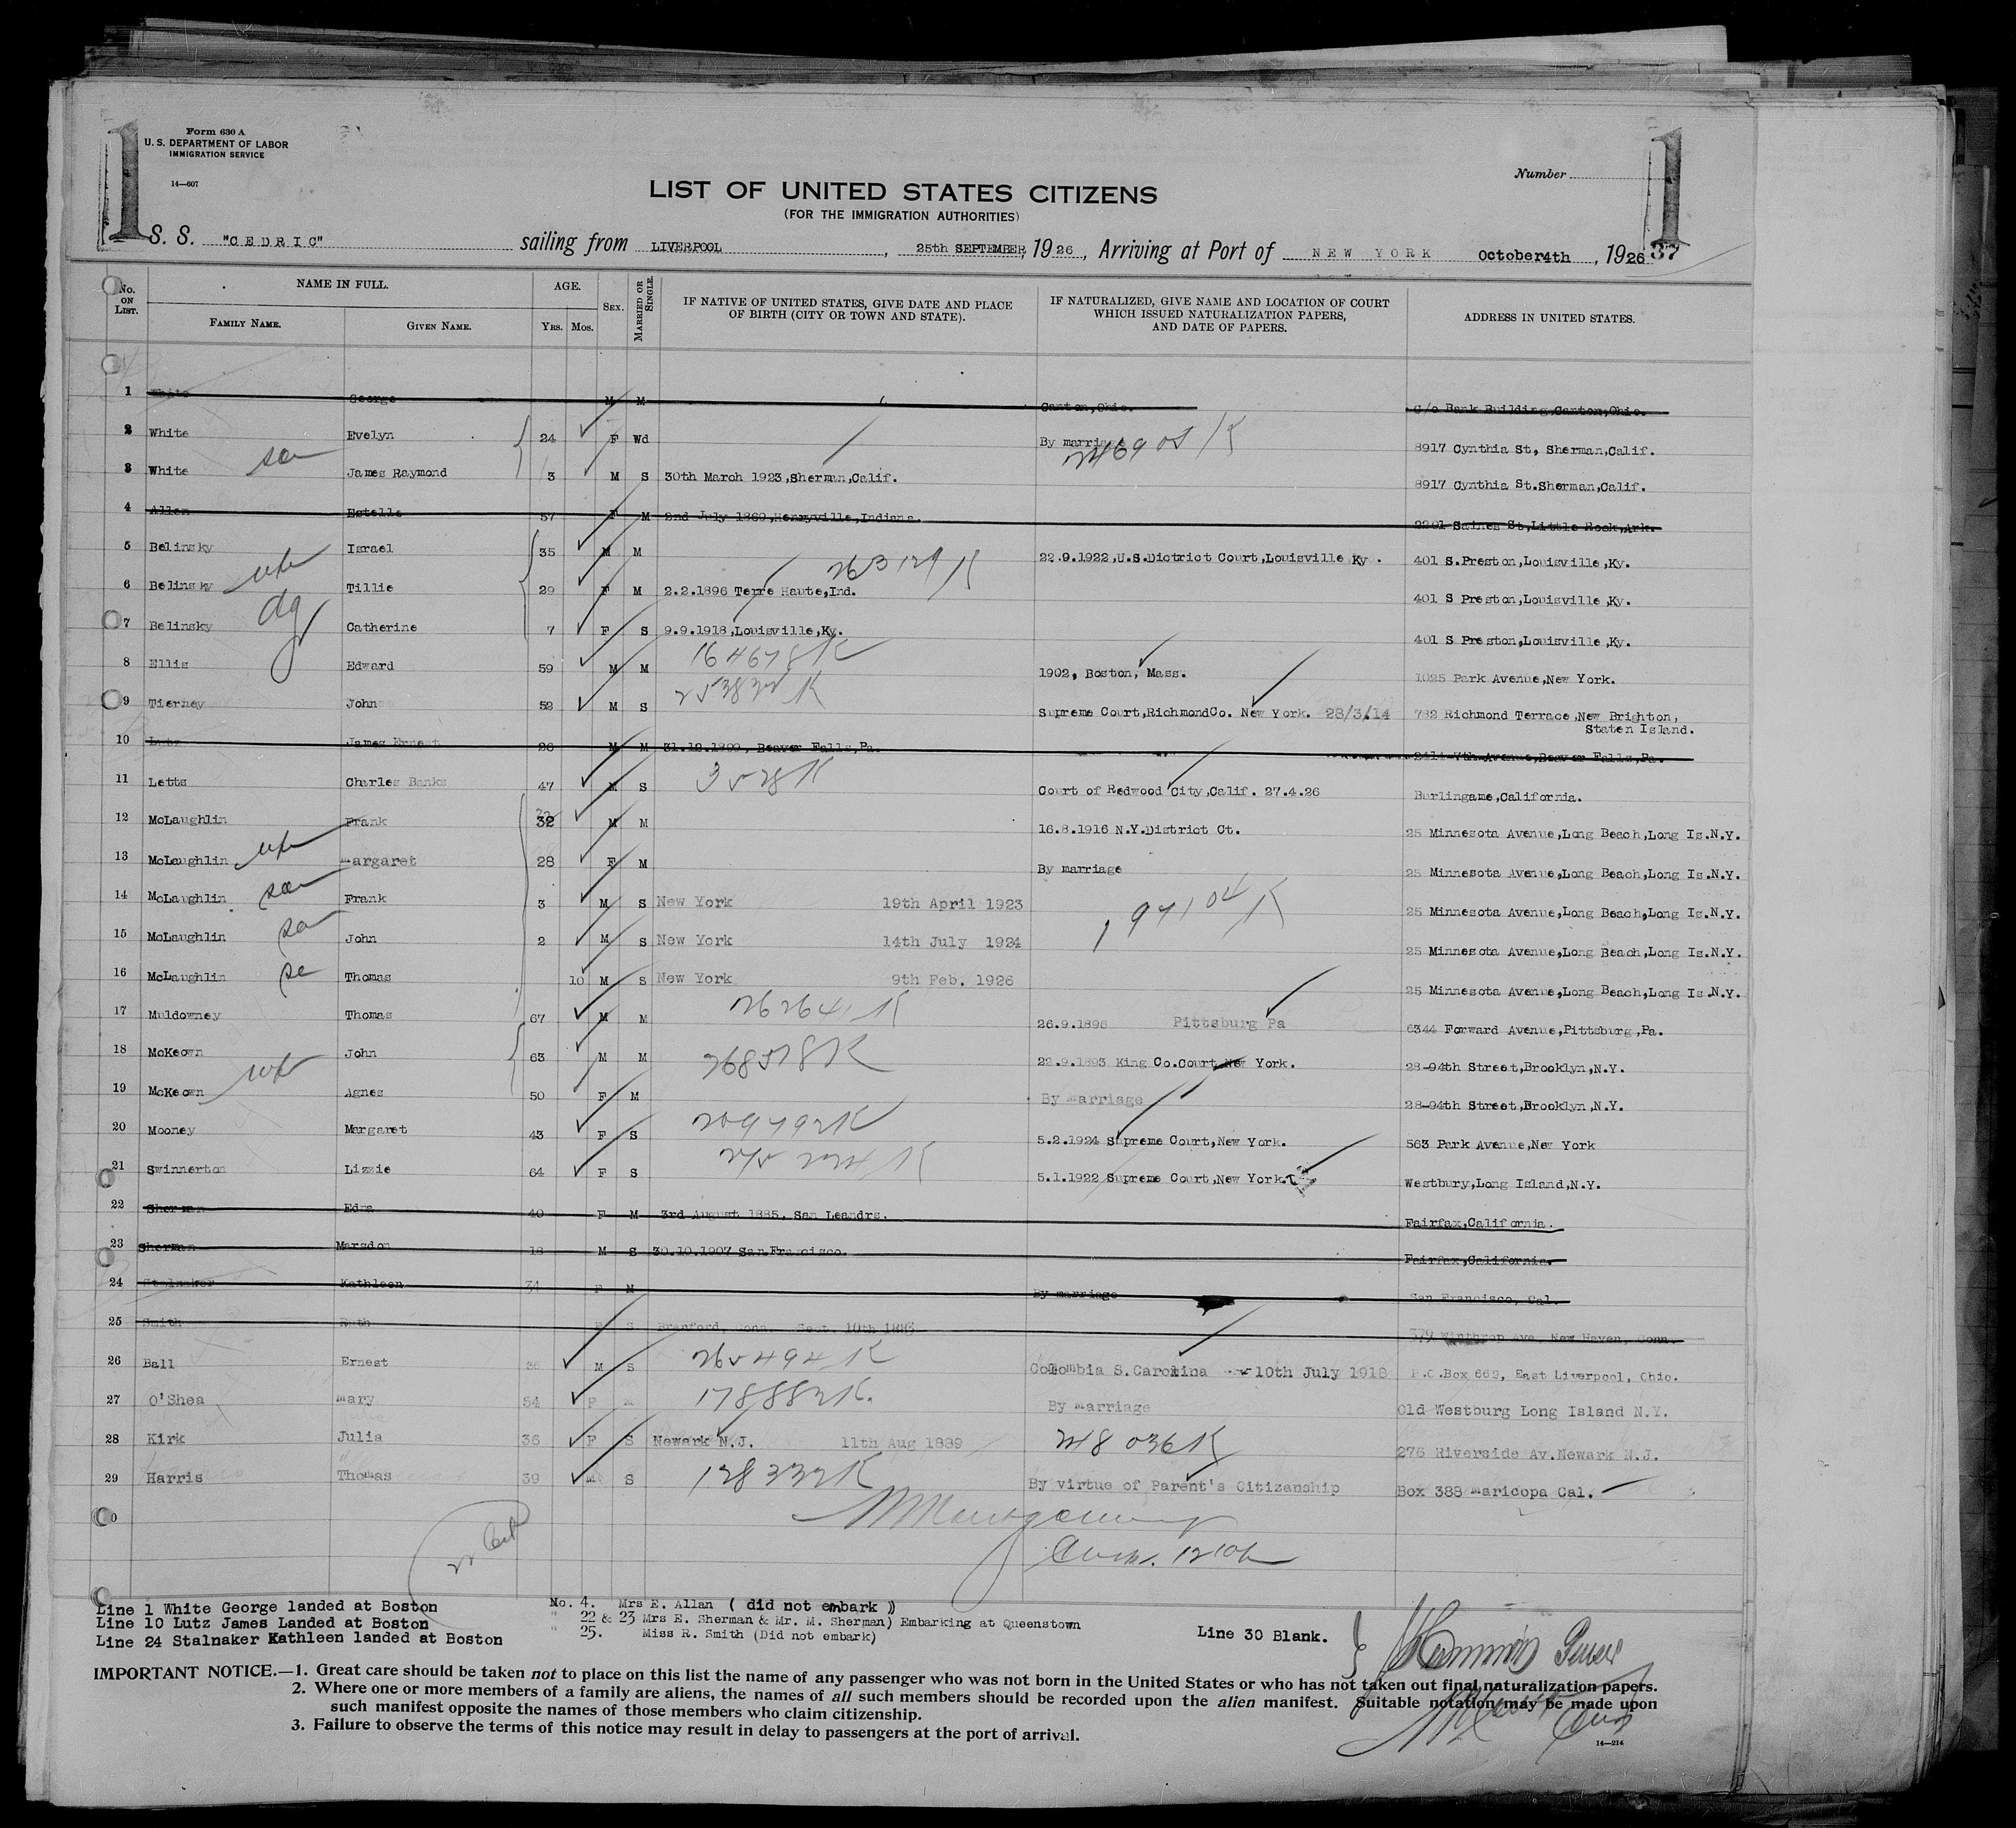 Form 630 A
U. S. DEPARTMENT OF LABOR
IMMIGRATION SERVICE
14—607
1
1
Number
LIST OF UNITED STATES CITIZENS
(FOR THE IMMIGRATION AUTHORITIES)
S. S. "CEDRIC" sailing from LIVERPOOL, 25th SEPTEMBER, 1926, Arriving at Port of NEW YORK October 4th, 1926 37
No. ON LIST. NAME IN FULL. FAMILY NAME. GIVEN NAME. AGE. YRS. MOS. SEX. MARRIED OR SINGLE. IF NATIVE OF UNITED STATES, GIVE DATE AND PLACE OF BIRTH (CITY OR TOWN AND STATE). IF NATURALIZED, GIVE NAME AND LOCATION OF COURT WHICH ISSUED NATURALIZATION PAPERS, AND DATE OF PAPERS. ADDRESS IN UNITED STATES.
1 White George M M Canton,Ohio. c/o Bank Building,Canton,Ohio.
2 White Evelyn 24 F Wd By marriage 8917 Cynthia St, Sherman,Calif.
3 White son James Raymond 3 M S 30th March 1923,Sherman,Calif. 8917 Cynthia St.Sherman,Calif.
4 Allan Estelle 57 F M 2nd July 1869,Henryville,Indiana. 2201 Saines St,Little Rock,Ark.
5 Belinsky Israel 35 M M 22.9.1922,U.S.Dictrict Court,Louisville Ky. 401 S.Preston,Louisville,Ky.
6 Belinsky wife Tillie 29 F M 2.2.1896 Terre Haute,Ind. 263129 K 401 S Preston,Louisville,Ky.
7 Belinsky dg Catherine 7 F S 9.9.1918,Louisville,Ky. 401 S Preston,Louisville,Ky.
8 Ellis Edward 59 M M 164678K 1902, Boston, Mass. 1025 Park Avenue,New York.
9 Tierney John 52 M S 253832 K Supreme Court,RichmondCo. New York. 28/3/14 782 Richmond Terrace,New Brighton, Staten Island.
10 Lutz James Ernest 26 M M 31.12.1899, Beaver Falls,Pa. 2414 7th Avenue,Beaver Falls,Pa.
11 Letts Charles Banks 47 M S 3528K Court of Redwood City,Calif. 27.4.26 Burlingame,California.
12 McLaughlin Frank 32 M M 16.8.1916 N.Y.District Ct. 25 Minnesota Avenue,Long Beach,Long Is.N.Y.
13 McLaughlin wife Margaret 28 F M By marriage 25 Minnesota Avenue,Long Beach,Long Is.N.Y.
14 McLaughlin son Frank 3 M S New York 19th April 1923 197104 K 25 Minnesota Avenue,Long Beach,Long Is.N.Y.
15 McLaughlin son John 2 M S New York 14th July 1924 25 Minnesota Avenue,Long Beach,Long Is.N.Y.
16 McLaughlin Thomas 10 M S New York 9th Feb. 1926 25 Minnesota Avenue,Long Beach,Long Is.N.Y.
17 Muldowney Thomas 67 M M 26.9.1896 Pittsburg Pa 6344 Forward Avenue,Pittsburg,Pa.
18 McKeown John 63 M M 268578K 22.9.1893 King Co.Court New York. 28-94th Street,Brooklyn,N.Y.
19 McKeown wife Agnes 50 F M By Marriage 28-94th Street,Brooklyn,N.Y.
20 Mooney Margaret 43 F S 209792K 5.2.1924 Supreme Court,New York. 563 Park Avenue,New York
21 Swinnerton Lizzie 64 F S 5.1.1922 Supreme Court,New York. Westbury,Long Island,N.Y.
22 Sherman Edna 40 F M 3rd August 1885, San Leandrs. Fairfax,California.
23 Sherman Marsdon 18 M S 30.10.1907 San.Francisco. Fairfax,California.
24 Stalnaker Kathleen 34 F M By marriage San Francisco, Cal.
25 Smith Ruth F S Branford, Conn. Sept. 10th 1883 379 Winthrop Ave. New Haven, Conn.
26 Ball Ernest M S 265494 K Colombia S.Carolina 10th July 1918 P.O.Box 662, East Liverpool, Ohio.
27 O'Shea Mary 54 F M 178882K. By Marriage Old Westburg Long Island N.Y.
28 Kirk Julia 36 F S Newark N.J. 11th Aug 1889 248036K 276 Riverside Av.Newark N.J.
29 Harris Thomas 39 M S 128332K By virtue of Parent's Citizenship Box 388 Maricopa Cal.
Line 1 White George landed at Boston
Line 10 Lutz James Landed at Boston
Line 24 Stalnaker Kathleen landed at Boston
No. 4. Mrs E. Allan ( did not embark )
" 22 & 23 Mrs E. Sherman & Mr. M. Sherman) Embarking at Queenstown
" 25. Miss R. Smith (Did not embark)
Line 30 Blank.
IMPORTANT NOTICE.—1. Great care should be taken not to place on this list the name of any passenger who was not born in the United States or who has not taken out final naturalization papers.
2. Where one or more members of a family are aliens, the names of all such members should be recorded upon the alien manifest. Suitable notation may be made upon
such manifest opposite the names of those members who claim citizenship.
3. Failure to observe the terms of this notice may result in delay to passengers at the port of arrival.
14—214